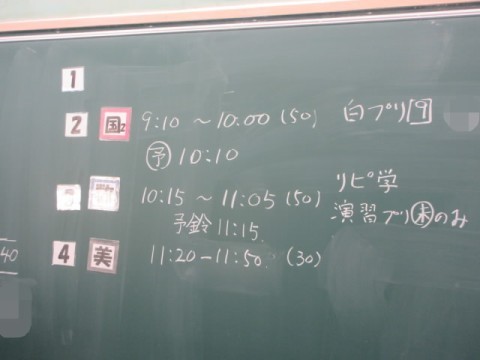 1
2 国2 9:10 ～ 10:00 (50) 白プリ 9
予 10:10
3 10:15 ～ 11:05 (50) リピ学
予鈴 11:15 演習プリ 木のみ
4 美 11:20-11:50 (30)
40